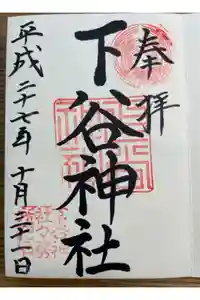 奉拝
下谷神社
平成二十七年十月三十一日